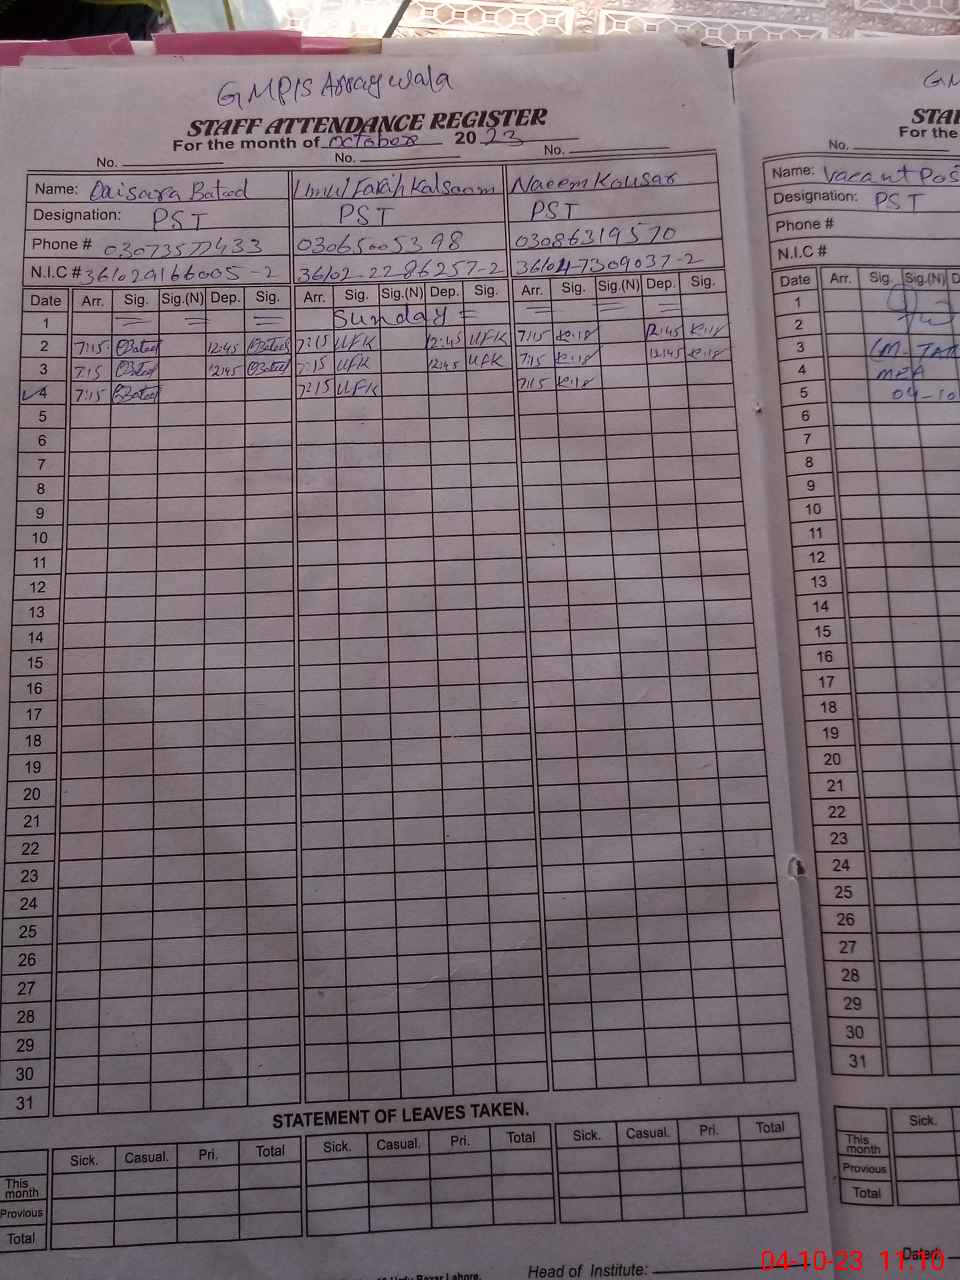 GMP/S Arraywala
STAFF ATTENDANCE REGISTER
For the month of October 2023
No. No. No.
Name: Qaisara Batool Umul Farah Kalsoom Naeem Kousar
Designation: PST PST PST
Phone # 03073577433 03065005398 03086319570
N.I.C # 36102-2286257-2
Date Arr. Sig. Sig.(N) Dep. Sig. Arr. Sig. Sig.(N) Dep. Sig. Arr. Sig. Sig.(N) Dep. Sig.
1 = = = Sunday = = = =
2 7:15 Batool 12:45 Batool 7:15 UFK 12:45 UFK 7:15 12:45
3 7:15 Batool 12:45 Batool 7:15 UFK 12:45 UFK 7:15 12:45
4 7:15 Batool 7:15 UFK 7:15
5
6
7
8
9
10
11
12
13
14
15
16
17
18
19
20
21
22
23
24
25
26
27
28
29
30
31
STATEMENT OF LEAVES TAKEN.
Sick. Casual. Pri. Total Sick. Casual. Pri. Total Sick. Casual. Pri. Total
This month
Previous
Total
Head of Institute:
GM
STA
For the
No.
Name: Vacant Pos
Designation: PST
Phone #
N.I.C #
Date Arr. Sig. Sig.(N) D
1
2
3
4 MEA
5 04-10
6
7
8
9
10
11
12
13
14
15
16
17
18
19
20
21
22
23
24
25
26
27
28
29
30
31
Sick.
This month
Previous
Total
Dated:
04-10-23 11:10